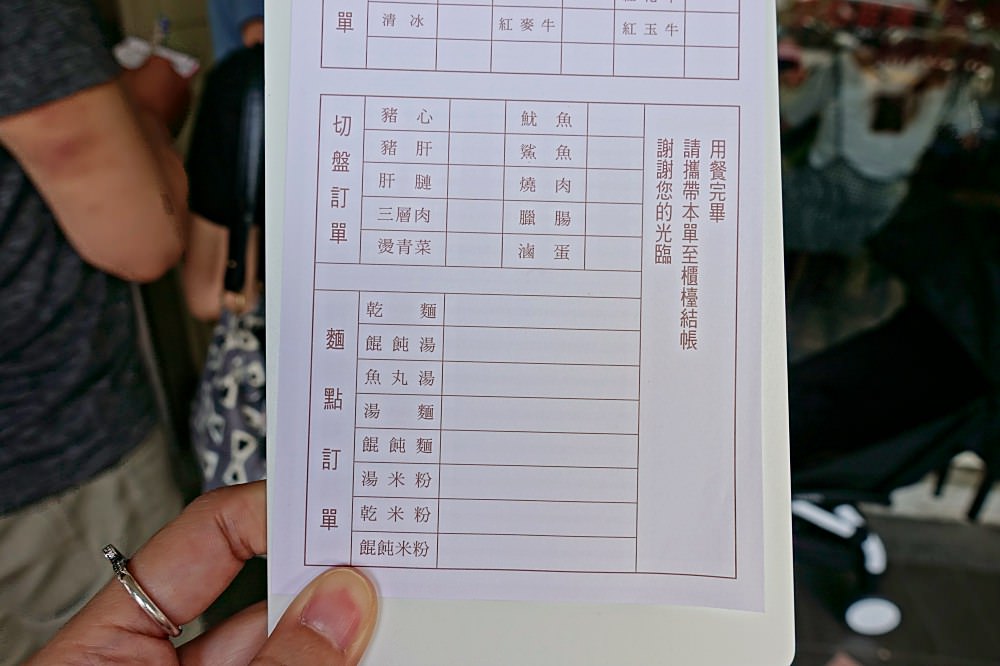 單
清冰 紅麥牛 紅玉牛
切盤訂單
豬心 魷魚
豬肝 鯊魚
肝腱 燒肉
三層肉 臘腸
燙青菜 滷蛋
麵點訂單
乾麵
餛飩湯
魚丸湯
湯麵
餛飩麵
湯米粉
乾米粉
餛飩米粉
用餐完畢
請攜帶本單至櫃檯結帳
謝謝您的光臨